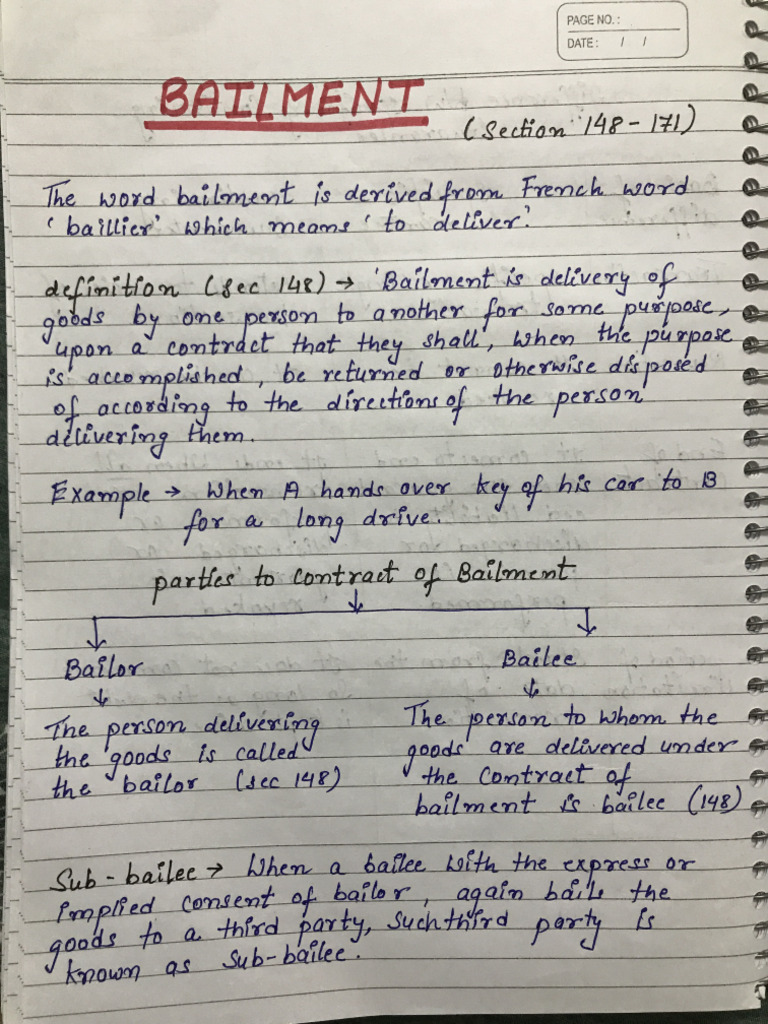 PAGE NO.:
DATE: / /
BAILMENT
(Section 148-171)
The word bailment is derived from French word
'baillier' which means 'to deliver'.
definition (sec 148) → 'Bailment is delivery of
goods by one person to another for some purpose,
upon a contract that they shall, when the purpose
is accomplished, be returned or otherwise disposed
of according to the directions of the person
delivering them.
Example → When A hands over key of his car to B
for a long drive.
parties to contract of Bailment
Bailor
Bailee
The person delivering
the goods is called
the bailor (sec 148)
The person to whom the
goods are delivered under
the contract of
bailment is bailee (148)
Sub-bailee → When a bailee with the express or
implied consent of bailor, again bails the
goods to a third party, such third party is
known as sub-bailee.